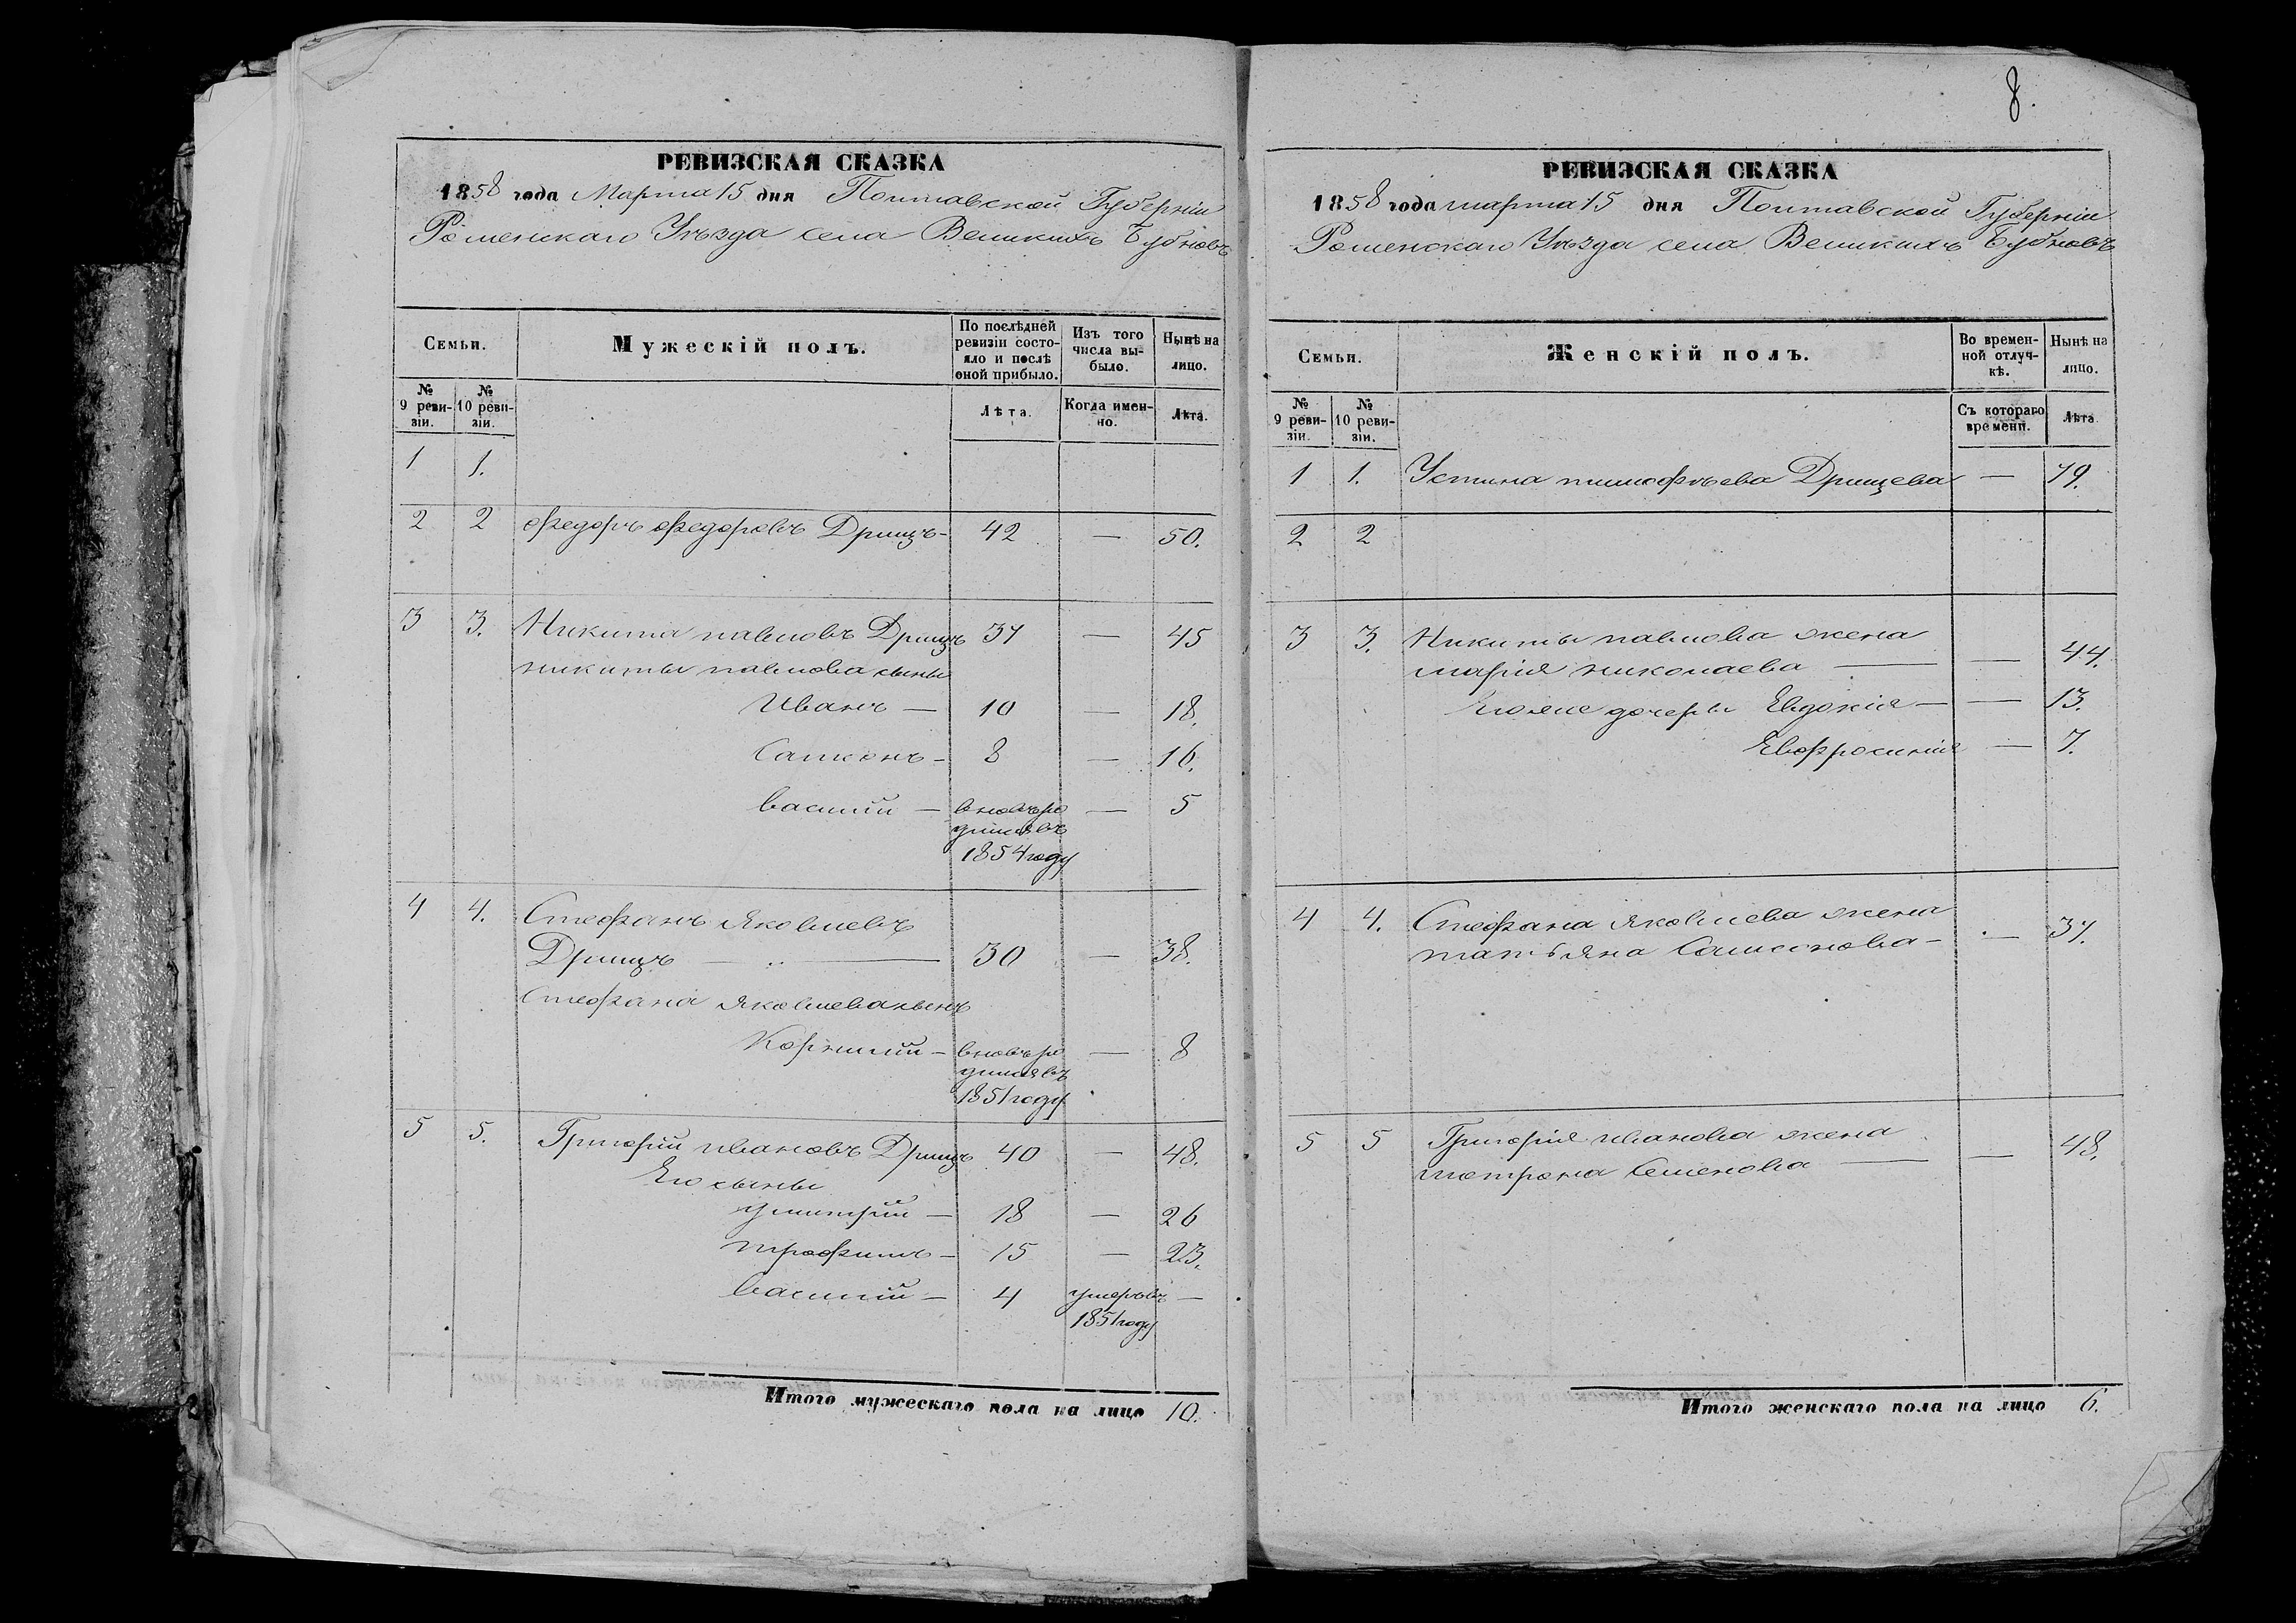 РЕВИЗСКАЯ СКАЗКА
1858 года Марта 15 дня Полтавской Губерніи
Роменскаго Уѣзда села Великихъ Бубновъ
Семьи.
Мужескій полъ.
По послѣдней ревизіи состояло и послѣ оной прибыло.
Изъ того числа выбыло.
Нынѣ на лицо.
№ 9 ревизіи.
№ 10 ревизіи.
Лѣта.
Когда именно.
Лѣта.
1 1.
2 2 Федоръ Федоровъ Дрищъ - 42 — 50.
3 3. Никита павловъ Дрищъ 37 — 45
никиты павлова сыны
Иванъ — 10 — 18.
Самсонъ - 8 — 16.
василій — вновь ро — 5
дился въ
1854 году
4 4. Стефанъ яковлевъ
Дрищъ — 30 — 38.
Стефана яковлева сынъ
Корнилій - вновь ро — 8
дился въ
1851 году
5 5. Григорій ивановъ Дрищъ 40 — 48.
Его сыны
дмитрій — 18 — 26
трофимъ - 15 — 23.
василій - 4 умеръ въ —
1851 году
Итого мужескаго пола на лицо 10.
8.
РЕВИЗСКАЯ СКАЗКА
1858 года марта 15 дня Полтавской Губерніи
Роменскаго Уѣзда села Великихъ Бубновъ
Семьи.
Женскій полъ.
Во временной отлучкѣ.
Нынѣ на лицо.
№ 9 ревизіи.
№ 10 ревизіи.
Съ котораго времени.
Лѣта.
1 1. Устина тимофѣева Дрищева — 79.
2 2
3 3. Никиты павлова жена
марія николаева — — 44.
Его же дочери Евдокія — — 13.
Евфросинія — 7.
4 4. Стефана яковлева жена
татьяна Самсонова - — 37.
5 5 Григорія иванова жена
мотрона Семенова — — 48.
Итого женскаго пола на лицо 6.